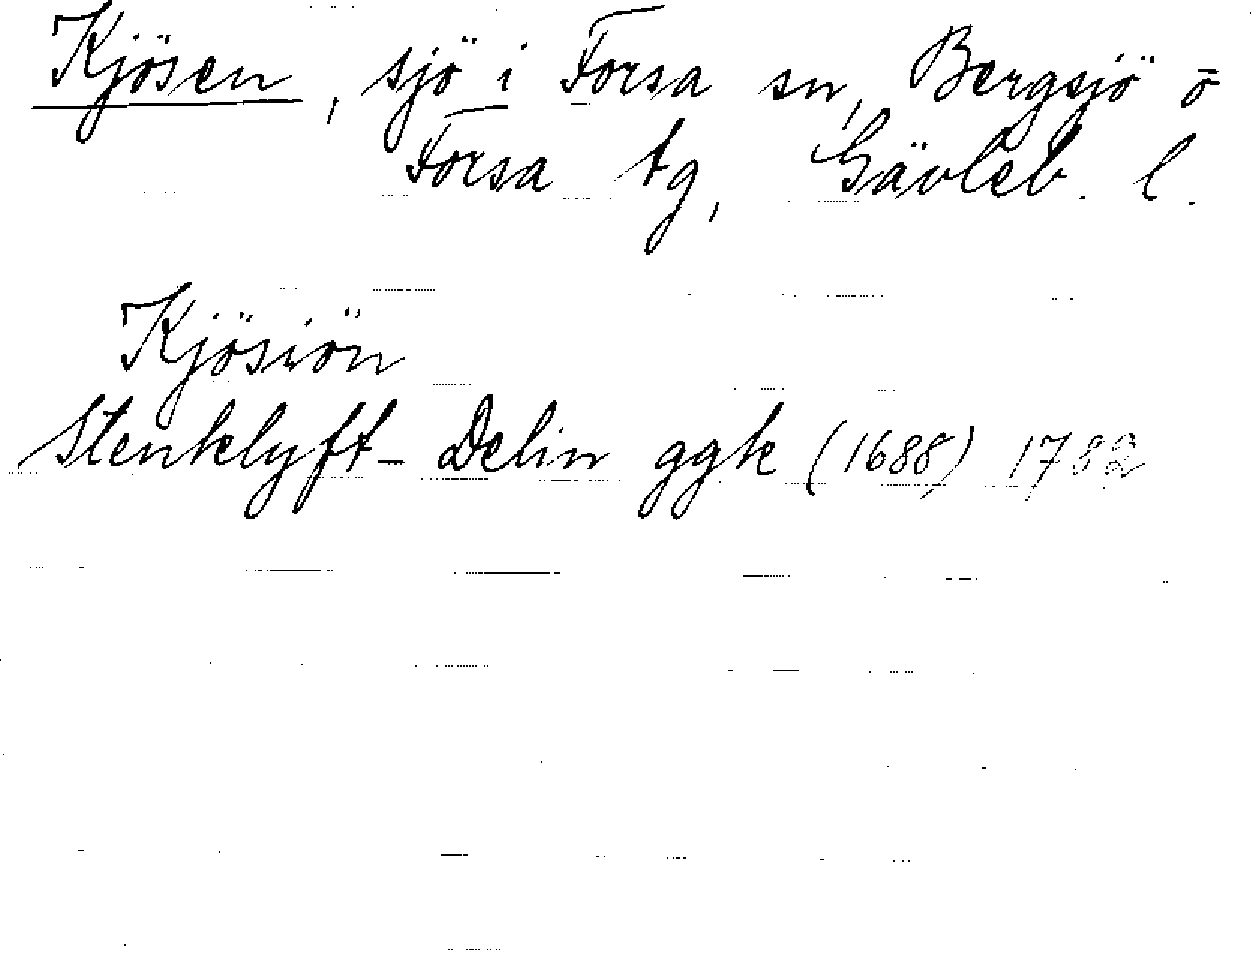 Kjösen, sjö i Forsa sn, Bergsjö o
Forsa tg, Gävleb. l.
Kjösiön
Stenklyft- Delin ggk (1688) 1782